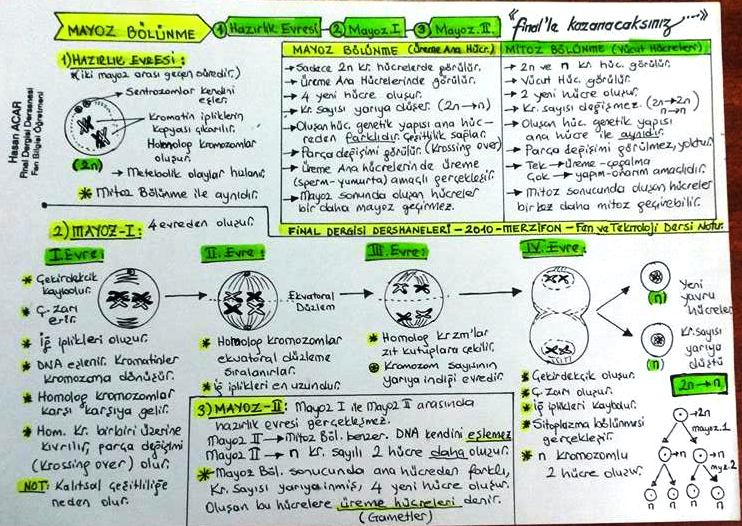 MAYOZ BÖLÜNME
1 Hazırlık Evresi - 2 Mayoz.I - 3 Mayoz.II.
"final'le kazanacaksınız..."
Hasan ACAR
Final Dergisi Dershanesi
Fen Bilgisi Öğretmeni
1) HAZIRLIK EVRESİ:
*(iki mayoz arası geçen süredir.)
Sentrozomlar kendini
eşler.
Kromatin ipliklerin
kopyası çıkarılır.
Homolog kromozomlar
oluşur.
(2n)
→ Metebolik olaylar hızlanır.
* Mitoz Bölünme ile aynıdır.
MAYOZ BÖLÜNME (Üreme Ana Hücr.)
→ Sadece 2n Kr. hücrelerde görülür.
→ Üreme Ana Hücrelerinde görülür.
→ 4 yeni hücre oluşur.
→ Kr. sayısı yarıya düşer. (2n→n)
→ Oluşan hüc. genetik yapısı ana hüc-
reden farklıdır. Çeşitlilik sağlar.
→ Parça değişimi görülür. (Krossing over)
→ Üreme Ana Hücrelerinde üreme
(sperm-yumurta) amaçlı gerçekleşir.
→ Mayoz sonunda oluşan hücreler
bir daha mayoz geçirmez.
MİTOZ BÖLÜNME (Vücut Hücreleri)
→ 2n ve n kr. hüc. görülür.
→ Vücut Hüc. görülür.
→ 2 yeni hücre oluşur.
→ Kr. sayısı değişmez. (2n→2n n→n)
→ Oluşan hüc. genetik yapısı
ana hücre ile aynıdır.
→ Parça değişimi görülmez, yoktur.
→ Tek → üreme-çoğalma
Çok → yapım-onarım amaçlıdır.
→ Mitoz sonucunda oluşan hücreler
birkez daha mitoz geçirebilir.
FİNAL DERGİSİ DERSHANELERİ - 2010 - MERZİFON - Fen ve Teknoloji Dersi Notur.
2) MAYOZ-I: 4 evreden oluşur.
I. Evre:
* Çekirdekcik
kaybolur.
* Ç. Zarı
erir.
* İğ iplikleri oluşur.
* DNA eşlenir. Kromatinler
kromozoma dönüşür.
* Homolog kromozomlar
karşı karşıya gelir.
* Hom. Kr. birbiri üzerine
kıvrılır, parça değişimi
(Krossing over) olur.
NOT: Kalıtsal çeşitliliğe
neden olur.
II. Evre:
Ekvatoral
Düzlem
* Homolog Kromozomlar
ekvatoral düzleme
sıralanırlar.
* iğ iplikleri en uzundur.
III. Evre:
* Homolog kr zm'lar
zıt kutuplara çekilir.
* Kromozom sayısının
yarıya indiği evredir.
IV. Evre:
(n)
(n)
Yeni
yavru
hücreler
Kr. sayısı
yarıya
düştü
* Çekirdekcik oluşur.
* Ç. Zarı oluşur.
* İğ iplikleri kaybolur.
* Sitoplazma bölünmesi
gerçekleşir.
* n kromozomlu
2 hücre oluşur.
2n→n
→2n
mayoz.1
→n
myz.2
n n n n
3) MAYOZ-II: Mayoz I ile Mayoz II arasında
hazırlık evresi gerçekleşmez.
Mayoz II → Mitoz Böl. benzer. DNA kendini eşlemez
Mayoz II → n kr. sayılı 2 hücre daha oluşur.
* Mayoz Böl. sonucunda ana hücreden farklı,
Kr. sayısı yarıya inmiş, 4 yeni hücre oluşur.
Oluşan bu hücrelere üreme hücreleri denir.
(Gametler)